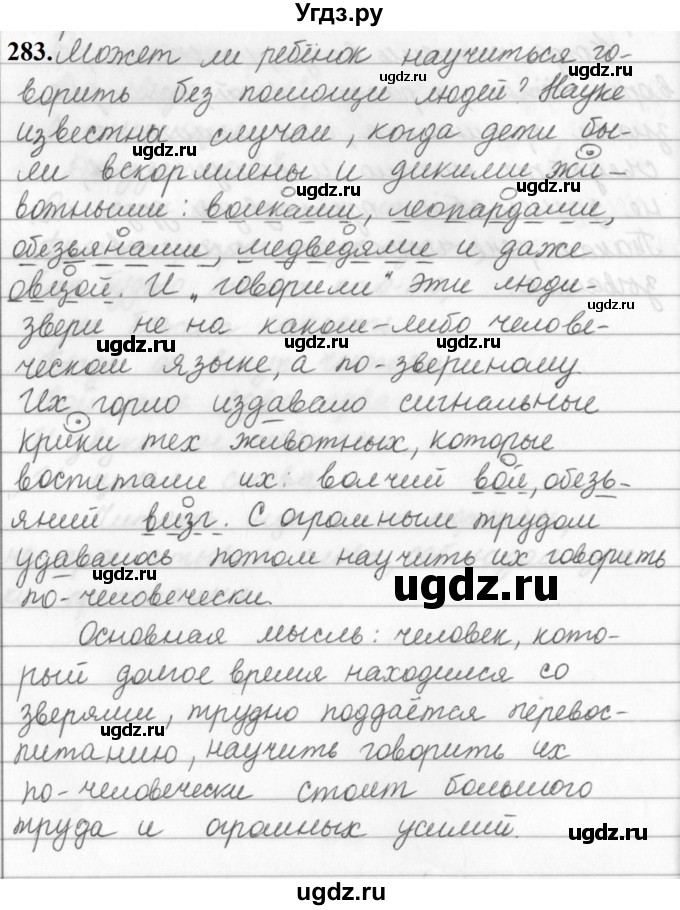 Угдз.ру
283. Может ли ребёнок научиться го-
ugdz.ru ugdz.ru
ворить без помощи людей? Науке
известны случаи, когда дети бы-
ugdz.ru ugdz.ru
ли вскормлены и дикими жи-
вотными: волками, леопардами,
ugdz.ru ugdz.ru
обезьянами, медведями и даже
овцой. И „говорили“ эти люди-
ugdz.ru
звери не на каком-либо челове-
ugdz.ru ugdz.ru
ческом языке, а по-звериному.
Их горло издавало сигнальные
крики тех животных, которые
воспитали их: волчий вой, обезь-
яний визг. С огромным трудом
удавалось потом научить их говорить
ugdz.ru ugdz.ru
по-человечески.
Основная мысль: человек, кото-
рый долгое время находился со
зверями, трудно поддаётся перевос-
питанию, научить говорить их
по-человечески стоит большого
труда и огромных усилий.
ugdz.ru
ugdz.ru